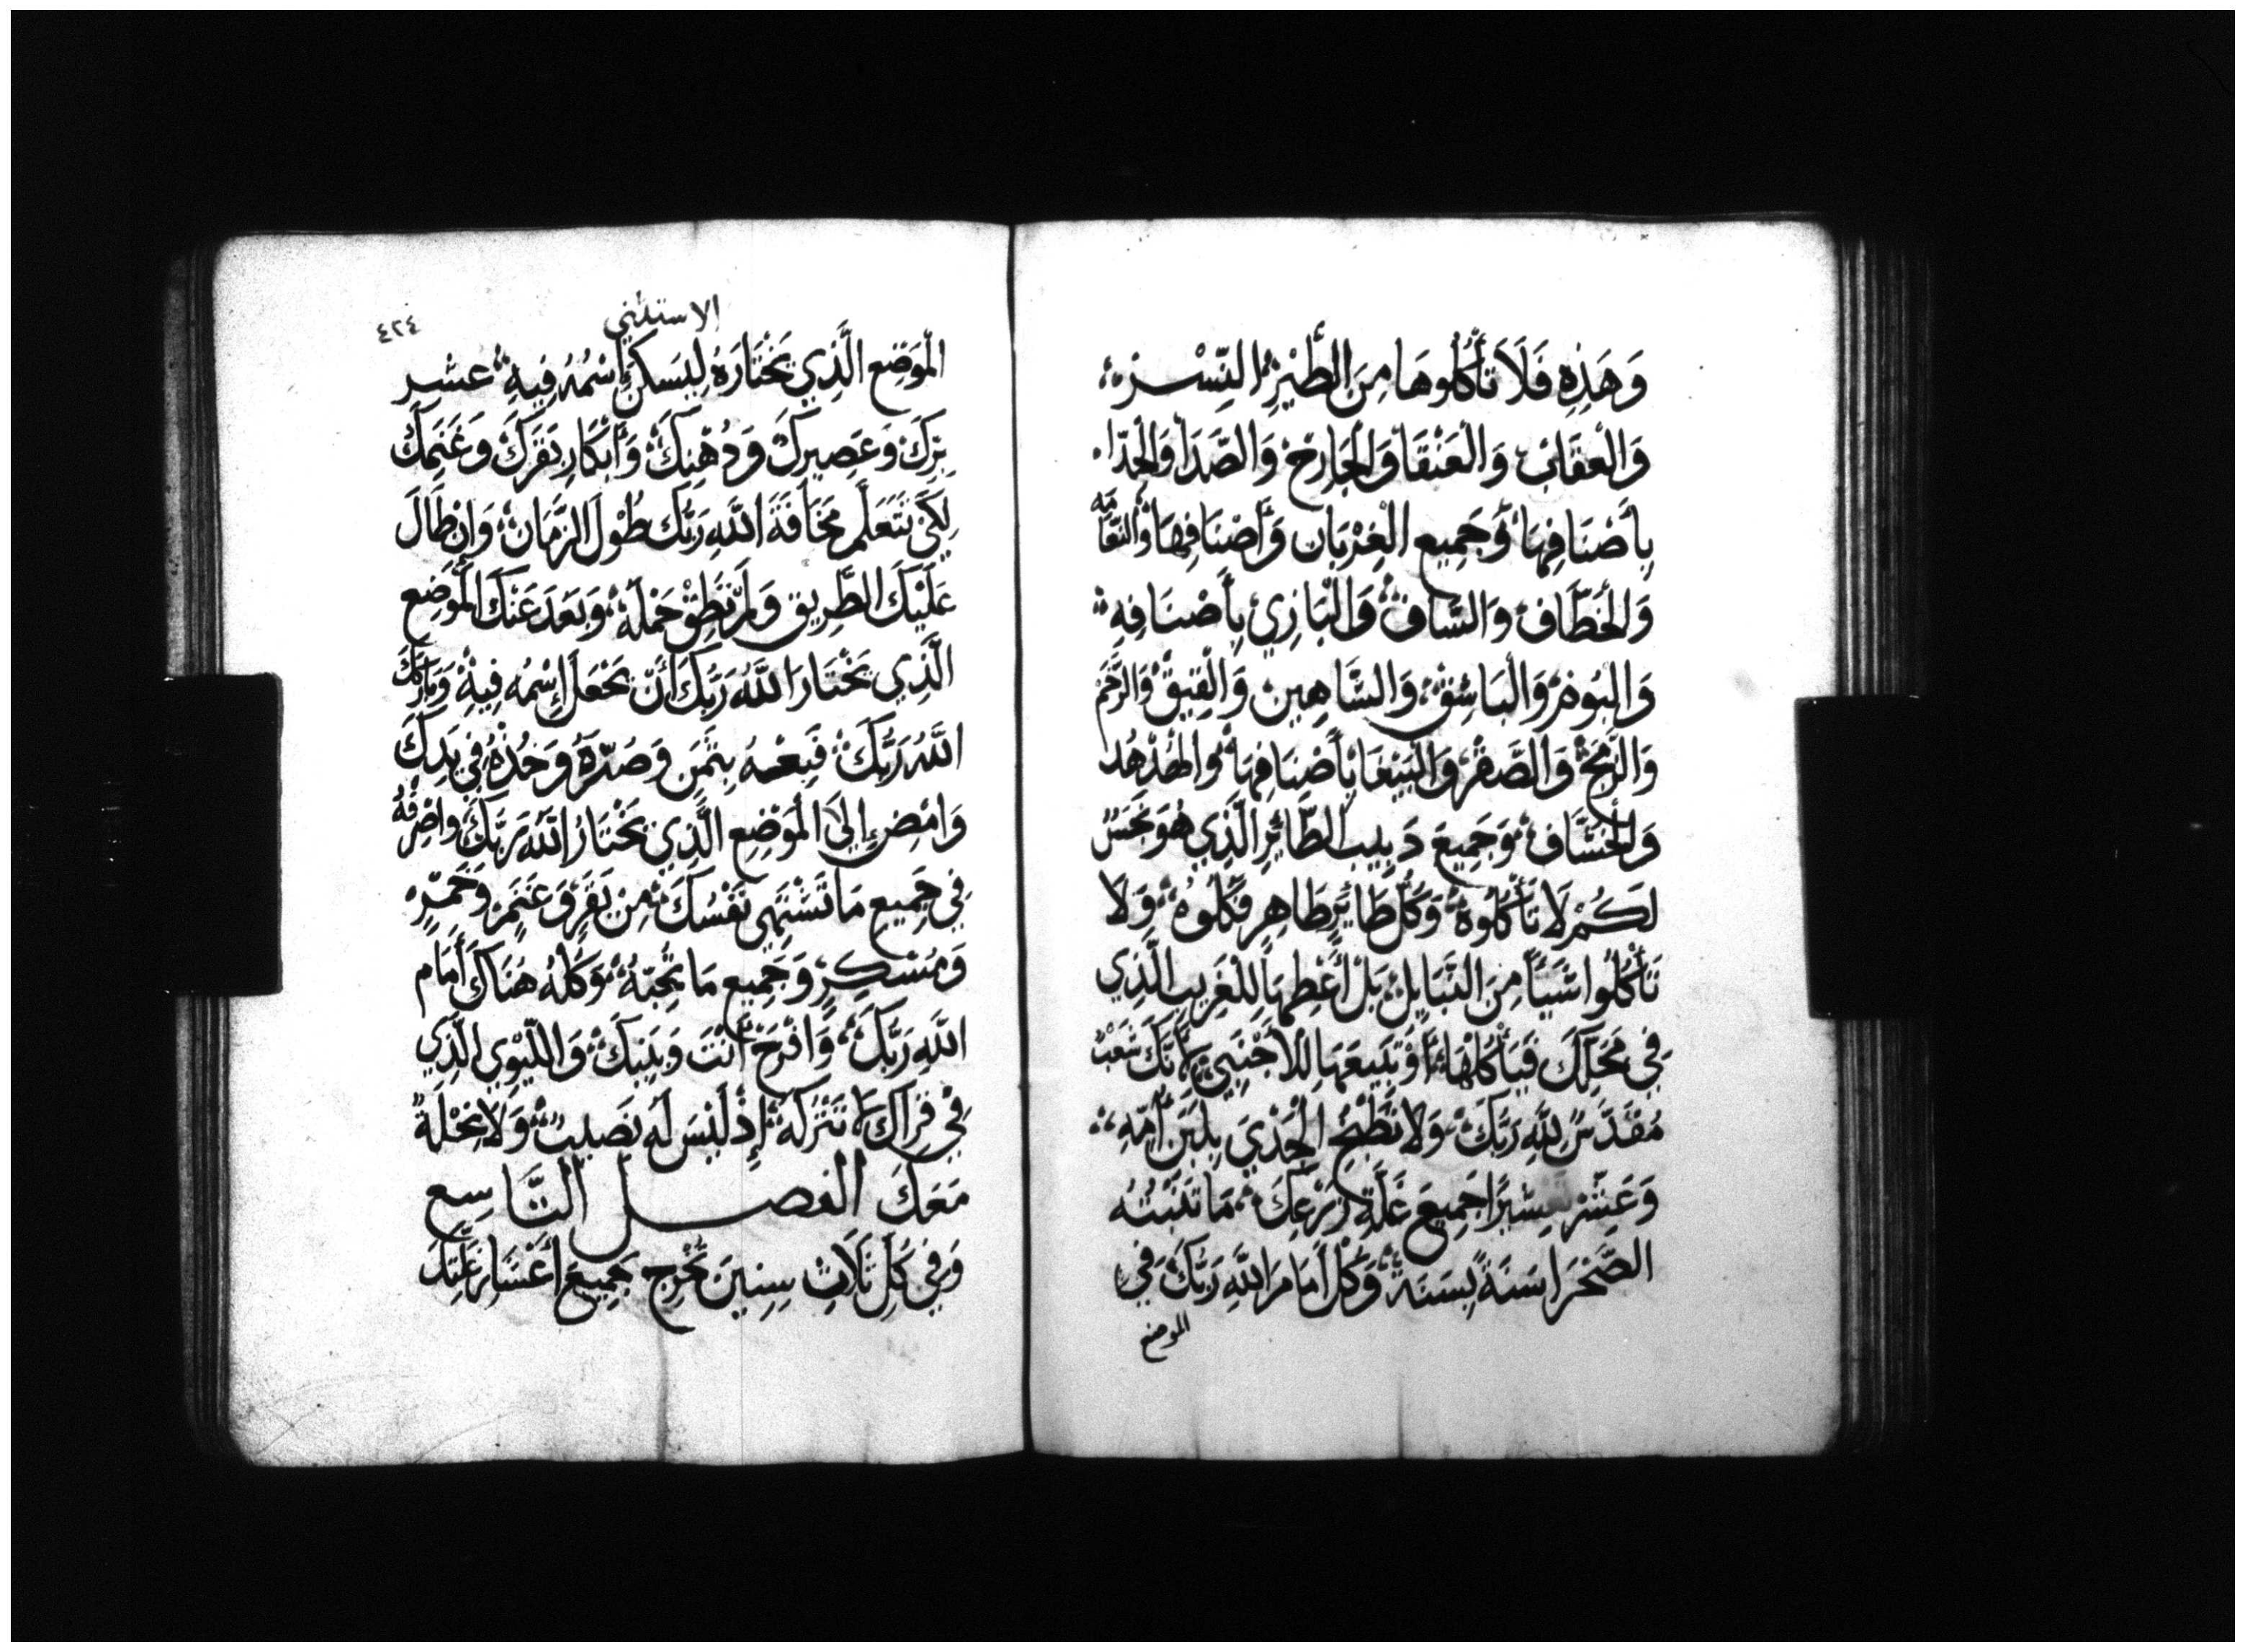 وَهَذِهِ فَلَا تَأْكُلُوهَا مِنَ الطَّيْرِ النِّسْرُ
وَالْعقَابُ وَالْعَنْقَا وَالْجَارِحْ وَالصَّدَا وَالْحِدَّا
بِأَصْنَافِهَا وَجَمِيع الْغِرْبَان وَأَصْنَافِهَا وَالنَّعَامَه
وَالْخُطَّاف وَالسَّاف وَالْبَازِي بِأَصْنَافِهِ
وَالْبُومْ وَالْبَاشِقْ وَالشَّاهِين وَالْقِيقْ وَالرَّخَمْ
وَالزمج وَالصَّقرْ وَالْبَبْغَا بِأَصْنَافِهَا وَالْهُدْهُد
وَالْخُشَّاف وَجَمِيعَ دَبِيب الطَّائِرِ الَّذِي هُوَ نَجَسٌ
لَكُمْ لَا تَأْكُلُوهُ وَكُل طَائِرٍ طَاهِرٍ فَكُلُوهُ وَلَا
تَأْكُلُوا شَيْأً مِنَ النَّبَايل بَلْ أَعْطِهَا لِلْغَرِيبِ الَّذِي
فِي مَحَلِّكَ فَيَأْكُلْهَا أَوْ تَبِيعَهَا لِلْأَجْنَبِي لِأَنَّكَ شَعْبٌ
مُقَدَّسٌ لِلَّهِ رَبِّكَ وَلَا تَطْبُخ الْجَدْيَ بِلَبَنِ أُمِّهِ
وَعَشِّرْ تعشيرًا جَمِيعَ غَلَّةِ زَرْعِكَ مَا تَنْبتُهُ
الصَّحْرَا سَنَةً بِسَنَةْ وَكُلْ أَمَامَ اللَّهِ رَبِّكَ فِي
الموضع
الاستثني
٤٢٤
الْمَوْضِع الَّذِي يَخْتَارَهُ لِيَسكنَ إسْمُهُ فِيهِ عشر
بُرِّكَ وَعَصِيرِكَ وَدُهْنِكَ وَأَبْكَارِ بَقَرِكَ وَغَنَمِكَ
لِكَيْ تَتَعَلَّم مَخَافَةَ اللَّهِ رَبُّك طُوْلَ الزَّمَان وَانْ طَالَ
عَلَيْكَ الطَّرِيق وَلَمْ تَطِقْ حَمْلَهُ وَبَعَدَ عَنْكَ الْمَوْضِع
الَّذِي يَخْتَارَ اللَّهُ رَبُّكَ أَنْ يَجْعَل إِسْمُه فِيهْ وَبَارَكَكَ
اللَّهُ رَبُّكَ فَبِعْهُ بِثَمَن وَصُرّهُ وَخُذْهُ فِي يَدِكَ
وَامْضِ إِلَى الْمَوْضِعِ الَّذِي يَخْتَارُ اللَّهُ رَبَّكَ وَاصْرِفْهُ
فِي جَمِيعِ مَا تَشْتَهِي نَفْسُكَ مِن بَقَرٍ وَغَنَمٍ وَخَمْرٍ
وَمُسْكِرٍ وَجَمِيع مَا تُحِبّهُ وَكُلْهُ هُنَاكَ أَمَام
اللَّهِ رَبُّكَ وَافْرَحْ أَنْتَ وَبَيْتكَ وَاللّيْوِي الَّذِي
فِي قرَاكَ لَا تَتْرُكهُ إِذْ لَيْسَ لَه نَصِيبٌ وَلَا نِحْلَةً
مَعَكَ الفصـــل التَّاسِع
وَفِي كُلِّ ثَلَاثِ سِنِينَ تُخْرِج جَمِيعَ أَعْشَار غَلَّتِكَ